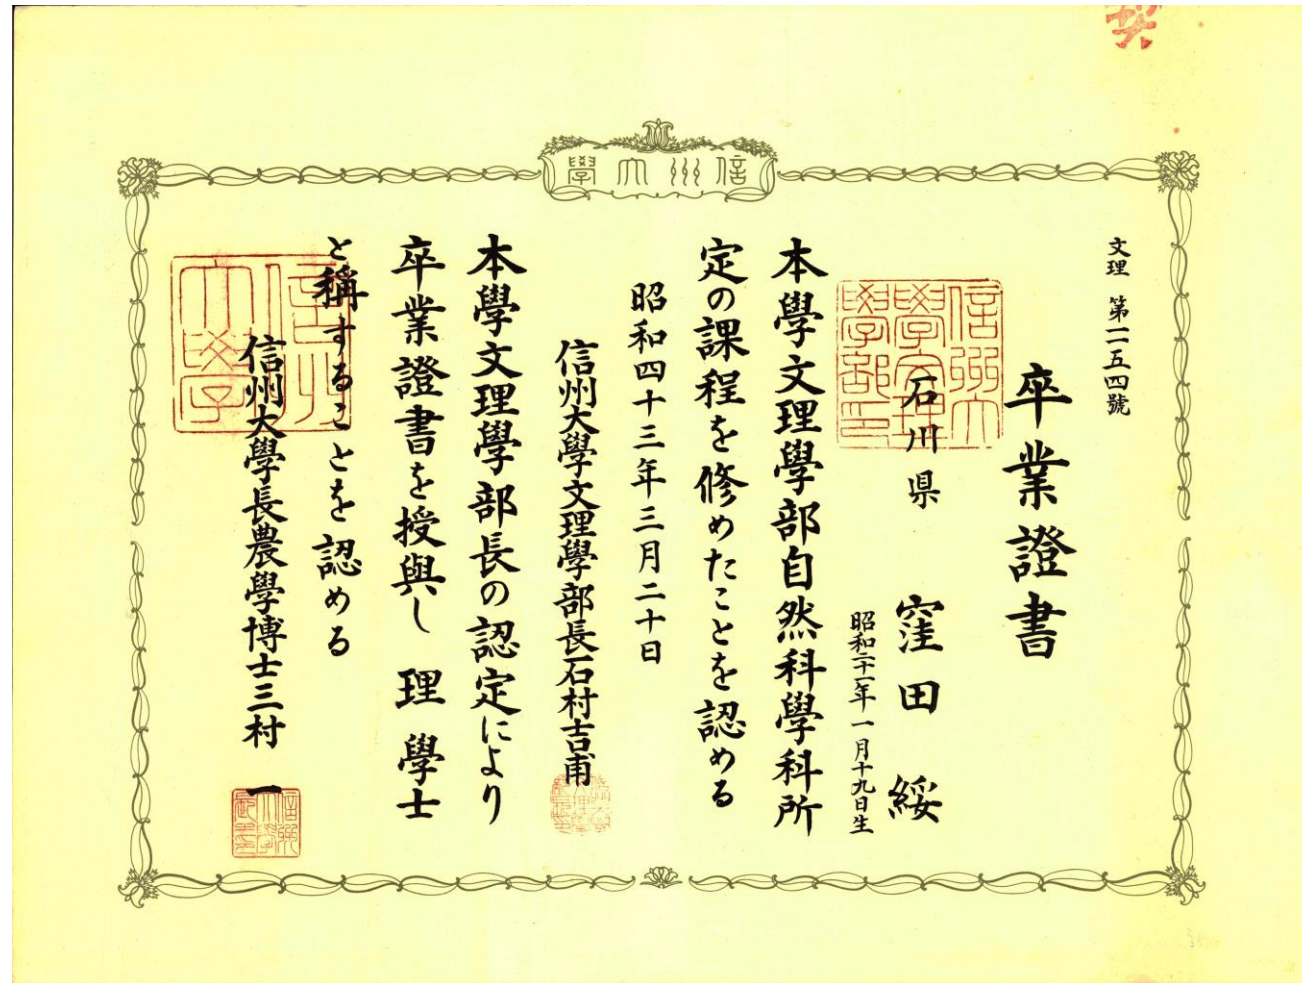 信州大學
文理 第一一五四號
卒業證書
石川県 窪田 綏
昭和二十一年一月十九日生
信州大學文理學部印
本學文理學部自然科學科所
定の課程を修めたことを認める
昭和四十三年三月二十日
信州大學文理學部長石村吉甫
本學文理學部長の認定により
卒業證書を授與し 理學士
と稱することを認める
信州大學
信州大學長農學博士三村 一